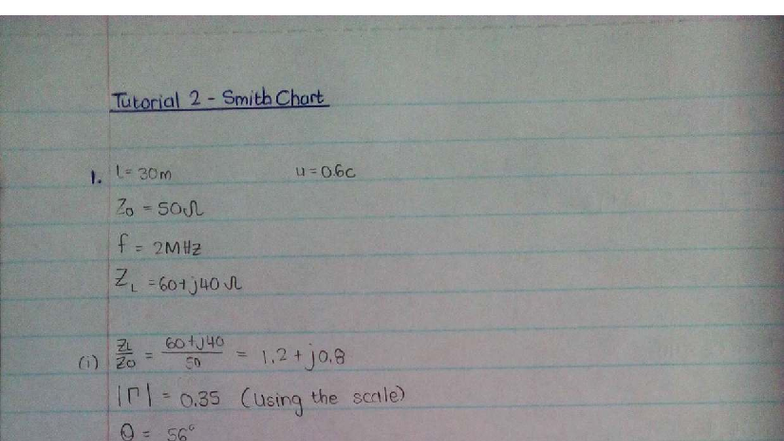 Tutorial 2 - Smith Chart
1. l = 30m u = 0.6c
Z₀ = 50Ω
f = 2MHz
Z_L = 60+j40 Ω
(i) Z_L/Z_0 = 60+j40/50 = 1.2 + j0.8
|Γ| = 0.35 (using the scale)
θ = 56°